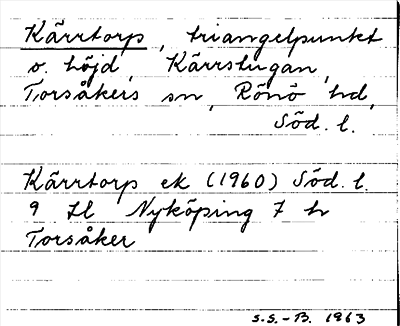 Kärrtorp, triangelpunkt
o. höjd, Kärrstugan,
Torsåkers sn, Rönö hd,
Söd. l.
Kärrtorp ek (1960) Söd. l.
9 H Nyköping 7 h
Torsåker
S.S.-B. 1963